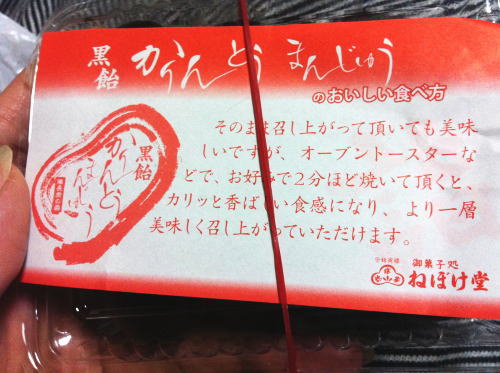 黒飴 かりんとう まんじゅう
のおいしい食べ方
そのまま召し上がって頂いても美味
しいですが、オーブントースターな
どで、お好みで2分ほど焼いて頂くと、
カリッと香ばしい食感になり、より一層
美味しく召し上がっていただけます。
黒飴
かりんとう
まんじゅう
御菓子処
ねぼけ堂